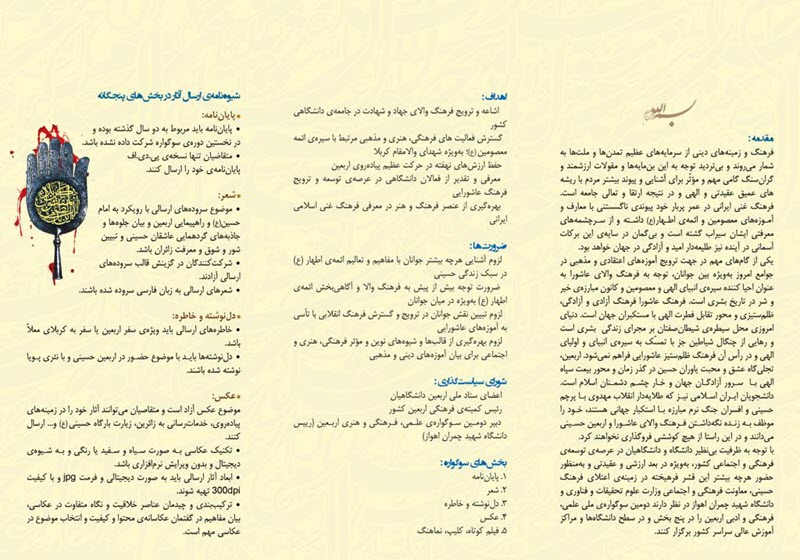 بسم الله
مقدمه:
فرهنگ و زمینه‌های دینی از سرمایه‌های عظیم تمدن‌ها و ملت‌ها به
شمار می‌روند و بی‌تردید توجه به این بن‌مایه‌ها و مقولات ارزشمند و
گران‌سنگ گامی مهم و مؤثر برای آشنایی و پیوند بیشتر مردم با ریشه
های عمیق عقیدتی و الهی و در نتیجه ارتقا و تعالی جامعه است.
فرهنگ غنی ایرانی در عمر پربار خود پیوندی ناگسستنی با معارف و
آموزه‌های معصومین و ائمه‌ی اطهار(ع) داشته و از سرچشمه‌های
معرفتی ایشان سیراب گشته است و بی‌گمان در سایه‌ی این برکات
آسمانی در آینده نیز طلیعه‌دار امید و آزادگی در جهان خواهد بود.
یکی از گام‌های مهم در جهت ترویج آموزه‌های اعتقادی و مذهبی در
جوامع امروز به‌ویژه بین جوانان، توجه به فرهنگ والای عاشورا به
عنوان احیا کننده سیره‌ی انبیای الهی و معصومین و کانون مبارزه‌ی خیر
و شر در تاریخ بشری است. فرهنگ عاشورا فرهنگ آزادی و آزادگی،
ظلم‌ستیزی و محور تقابل فطرت الهی با مستکبران جهان است. دنیای
امروزی محل سیطره‌ی شیطان‌صفتان بر مجرای زندگی بشری است
و رهایی از چنگال شیاطین جز با تمسک به سیره‌ی انبیا و اولیای
الهی و در رأس آن فرهنگ ظلم‌ستیز عاشورایی فراهم نمی‌شود. اربعین،
تجلی‌گاه عشق و محبت یاوران حسین در گذر زمان و محور بیعت سپاه
الهی با سرور آزادگان جهان و خار چشم دشمنان اسلام است.
دانشجویان ایران اسلامی نیز که طلایه‌دار انقلاب مهدوی با پرچم
حسینی و افسران جنگ نرم مبارزه با استکبار جهانی هستند، خود را
موظف به زنده نگه‌داشتن فرهنگ والای عاشورا و اربعین حسینی
می‌دانند و در این راستا از هیچ کوششی فروگذاری نخواهند کرد.
با توجه به ظرفیت بی‌نظیر دانشگاه و دانشگاهیان در عرصه‌ی توسعه‌ی
فرهنگی و اجتماعی کشور، به‌ویژه در بعد ارزشی و عقیدتی و به‌منظور
حضور هرچه بیشتر این قشر فرهیخته در زمینه‌ی اعتلای فرهنگ
حسینی، معاونت فرهنگی و اجتماعی وزارت علوم تحقیقات و فناوری و
دانشگاه شهید چمران اهواز در نظر دارند دومین سوگواره‌ی ملی علمی،
فرهنگی و ادبی اربعین را در پنج بخش و در سطح دانشگاه‌ها و مراکز
آموزش عالی سراسر کشور برگزار کنند.
اهداف:
اشاعه و ترویج فرهنگ والای جهاد و شهادت در جامعه‌ی دانشگاهی
کشور
گسترش فعالیت های فرهنگی، هنری و مذهبی مرتبط با سیره‌ی ائمه
معصومین(ع)؛ به‌ویژه شهدای والامقام کربلا
حفظ ارزش‌های نهفته در حرکت عظیم پیاده‌روی اربعین
معرفی و تقدیر از فعالان دانشگاهی در عرصه‌ی توسعه و ترویج
فرهنگ عاشورایی
بهره‌گیری از عنصر فرهنگ و هنر در معرفی فرهنگ غنی اسلامی
ایرانی
ضرورت‌ها:
لزوم آشنایی هرچه بیشتر جوانان با مفاهیم و تعالیم ائمه‌ی اطهار (ع)
در سبک زندگی حسینی
ضرورت توجه بیش از پیش به فرهنگ والا و آگاهی‌بخش ائمه‌ی
اطهار (ع) به‌ویژه در میان جوانان
لزوم تبیین نقش جوانان در ترویج و گسترش فرهنگ انقلابی با تأسی
به آموزه‌های عاشورایی
لزوم بهره‌گیری از قالب‌ها و شیوه‌های نوین و مؤثر فرهنگی، هنری و
اجتماعی برای بیان آموزه‌های دینی و مذهبی
شورای سیاست‌گذاری:
اعضای ستاد ملی اربعین دانشگاهیان
رئیس کمیته‌ی فرهنگی اربعین کشور
دبیر دومین سوگواره‌ی علمی، فرهنگی و هنری اربعین (رییس
دانشگاه شهید چمران اهواز)
بخش‌های سوگواره:
۱. پایان‌نامه
۲. شعر
۳. دل‌نوشته و خاطره
۴. عکس
۵. فیلم کوتاه، کلیپ، نماهنگ
شیوه‌نامه‌ی ارسال آثار در بخش‌های پنجگانه
• پایان‌نامه:
• پایان‌نامه باید مربوط به دو سال گذشته بوده و
در نخستین دوره‌ی سوگواره شرکت داده نشده باشد.
• متقاضیان تنها نسخه‌ی پی‌دی.اف
پایان‌نامه‌ی خود را ارسال کنند.
• شعر:
• موضوع سروده‌های ارسالی با رویکرد به امام
حسین(ع) و راهپیمایی اربعین و بیان جلوه‌ها و
جاذبه‌های گردهمایی عاشقان حسینی و تبیین
شور و شوق و معرفت زائران باشد.
• شرکت‌کنندگان در گزینش قالب سروده‌های
ارسالی آزادند.
• شعرهای ارسالی به زبان فارسی سروده شده باشند.
• دل‌نوشته و خاطره:
• خاطره‌های ارسالی باید ویژه‌ی سفر اربعین یا سفر به کربلای معلاً
باشد.
• دل‌نوشته‌ها باید با موضوع حضور در اربعین حسینی و با نثری پویا
نوشته شده باشند.
• عکس:
موضوع عکس آزاد است و متقاضیان می‌توانند آثار خود را در زمینه‌های
پیاده‌روی، خدمات‌رسانی به زائرین، زیارت بارگاه حسینی (ع) و... ارسال
کنند
• تکنیک عکاسی به صورت سیاه و سفید یا رنگی و به شیوه‌ی
دیجیتال و بدون ویرایش نرم‌افزاری باشد.
• ابعاد آثار ارسالی باید به صورت دیجیتالی و فرمت jpg و با کیفیت
300dpi تهیه شوند.
• ترکیب‌بندی و چیدمان عناصر خلاقیت و نگاه متفاوت در عکاسی،
بیان مفاهیم در گفتمان عکاسانه‌ی محتوا و کیفیت و انتخاب موضوع در
عکاسی مهم است.